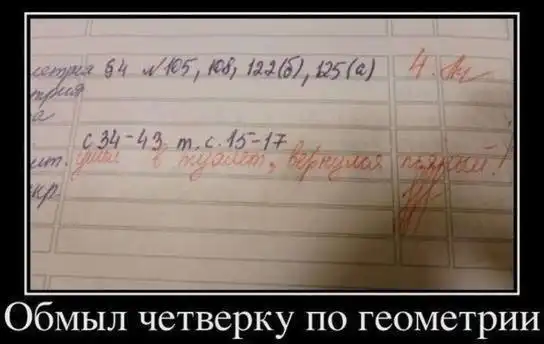 метрия §4 №105, 108, 122(б), 125(а) 4.
трия
а
с 34-43 т. с. 15-17
ит. ушел в туалет, вернулся пьяный!
Обмыл четверку по геометрии